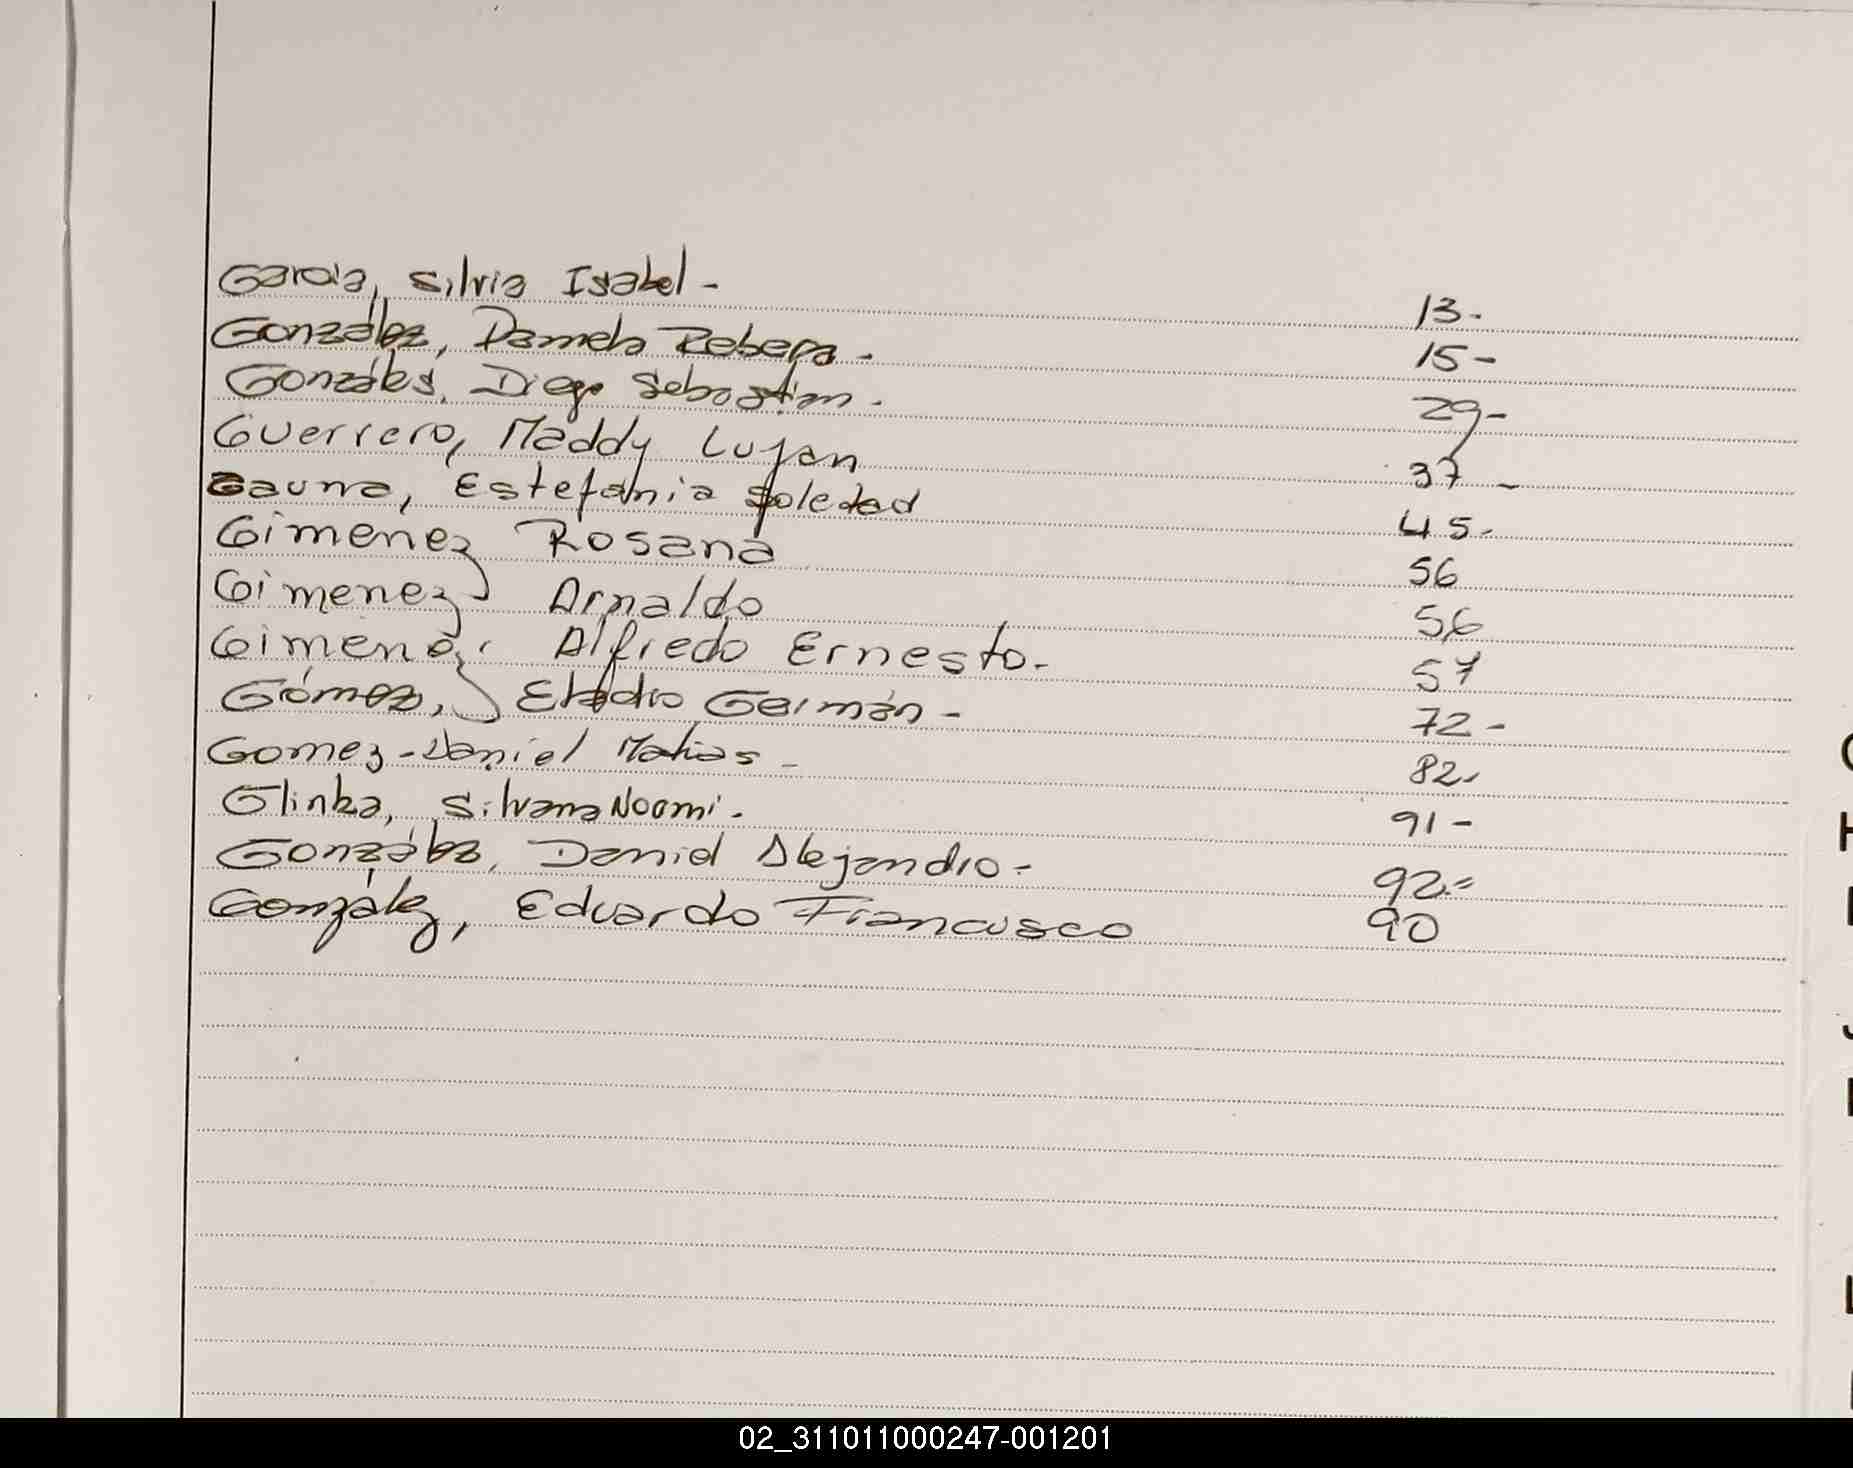 Garcia, Silvia Isabel - 13.-
González, Pamela Rebeca. 15-
Gonzáles, Diego Sebastian. 29-
Guerrero, Maddy Lujan 37 -
Gauna, Estefania Soledad 45.-
Gimenez Rosana 56
Gimenez Arnaldo 56
Gimenez, Alfredo Ernesto. 57
Gómez, Eladio Germán - 72-
Gomez - Daniel Matias - 82.
Glinka, Silvana Noemi. 91-
González, Daniel Alejandro - 92.=
González, Eduardo Francisco 90
02_311011000247-001201